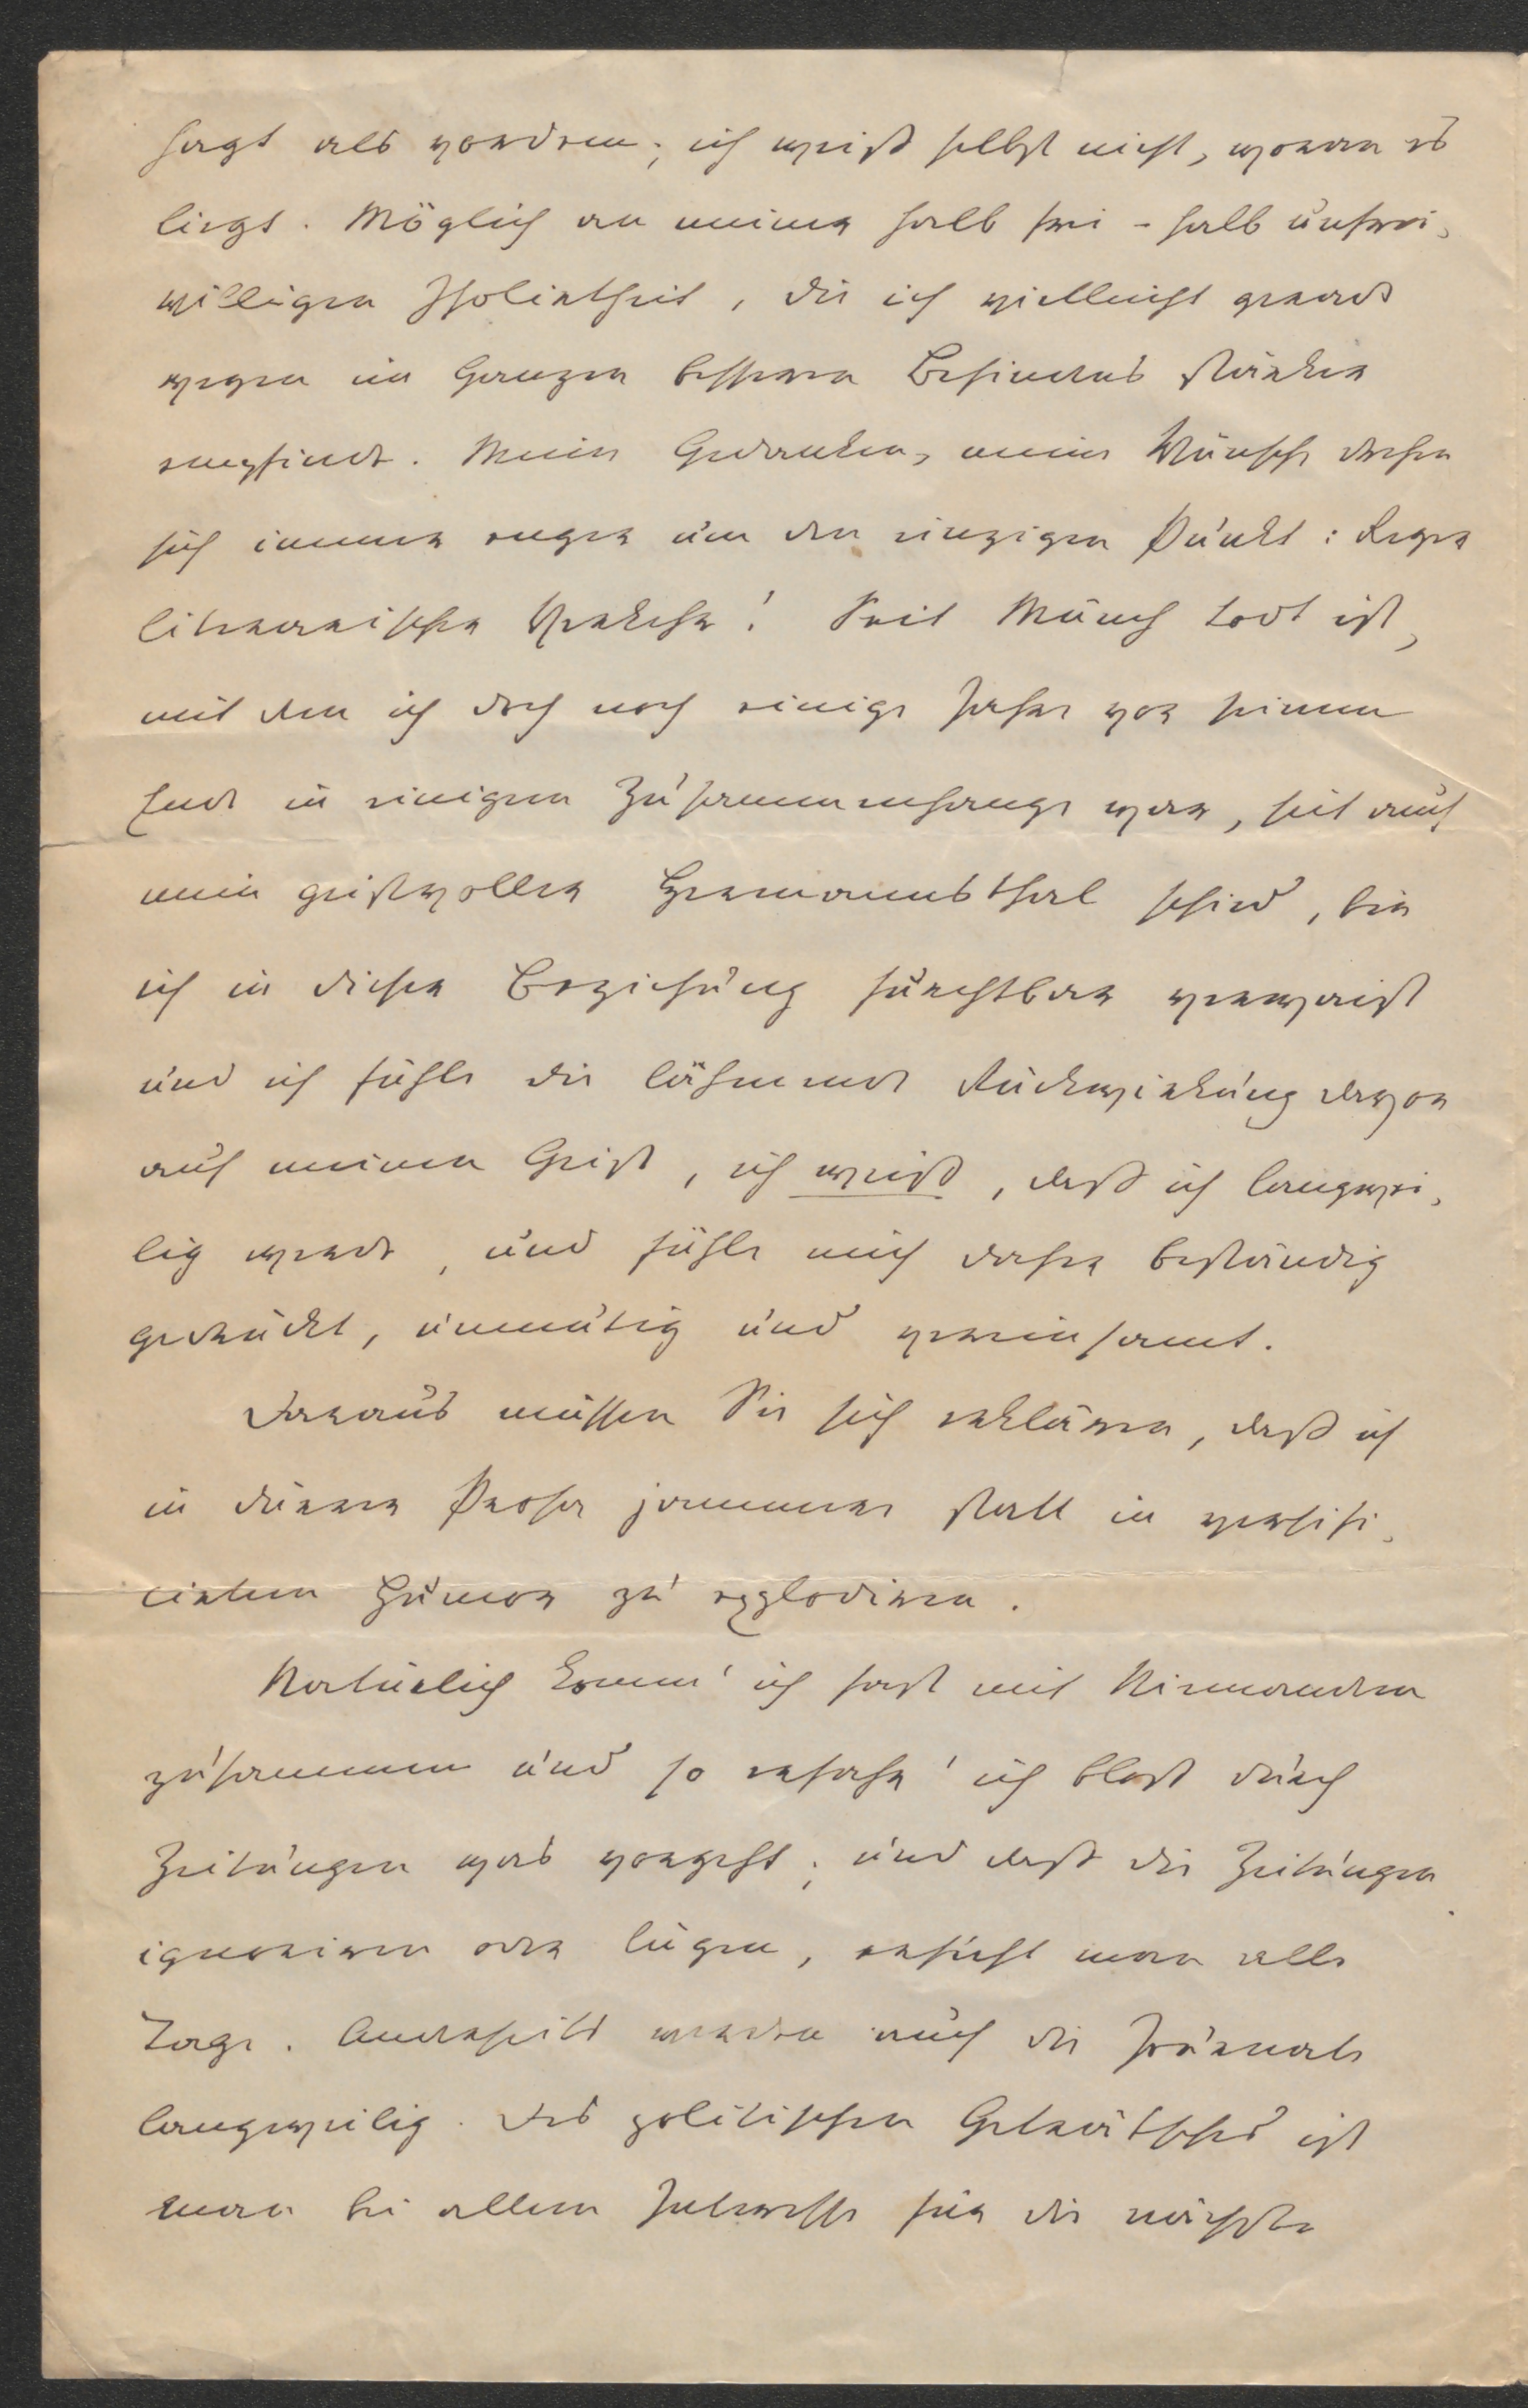 sagt als vordem; ich weiß selbst nicht, woran es
liegt. Möglich an meiner halb frei- halb unfrei-
willigen Isolirtheit, die ich vielleicht gerade
wegen im Ganzen besseren Befindens stärker
empfinde. Meine Gedanken, meine Wünsche drehen
sich immer enger um den einzigen Punkt: Reger
literarischer Verkehr! Seit Münch todt ist,
mit dem ich doch noch einige Jahre vor seinem
Ende in einigem Zusammenhange war, seit auch
mein geistvoller Hermannsthal schied, bin
ich in dieser Beziehung furchtbar verwaist
und ich fühle die lähmende Rückwirkung davon
auf meinen Geist, ich weiß, daß ich langwei-
lig werde, und fühle mich daher beständig
gedrückt, unmutig und vereinsamt.
Daraus müssen Sie sich erklären, daß ich
in dürrer Prosa jammere statt in versifi-
cirtem Humor zu explodiren.
Natürlich komm' ich fast mit Niemandem
zusammen und so erfahr' ich bloß durch
Zeitungen was vorgeht; und daß die Zeitungen
ignoriren oder lügen, ersieht man alle
Tage. Anderseits werden auch die Journale
langweilig. Des politischen Geträtsches ist
man bei allem Interesse für die nächste